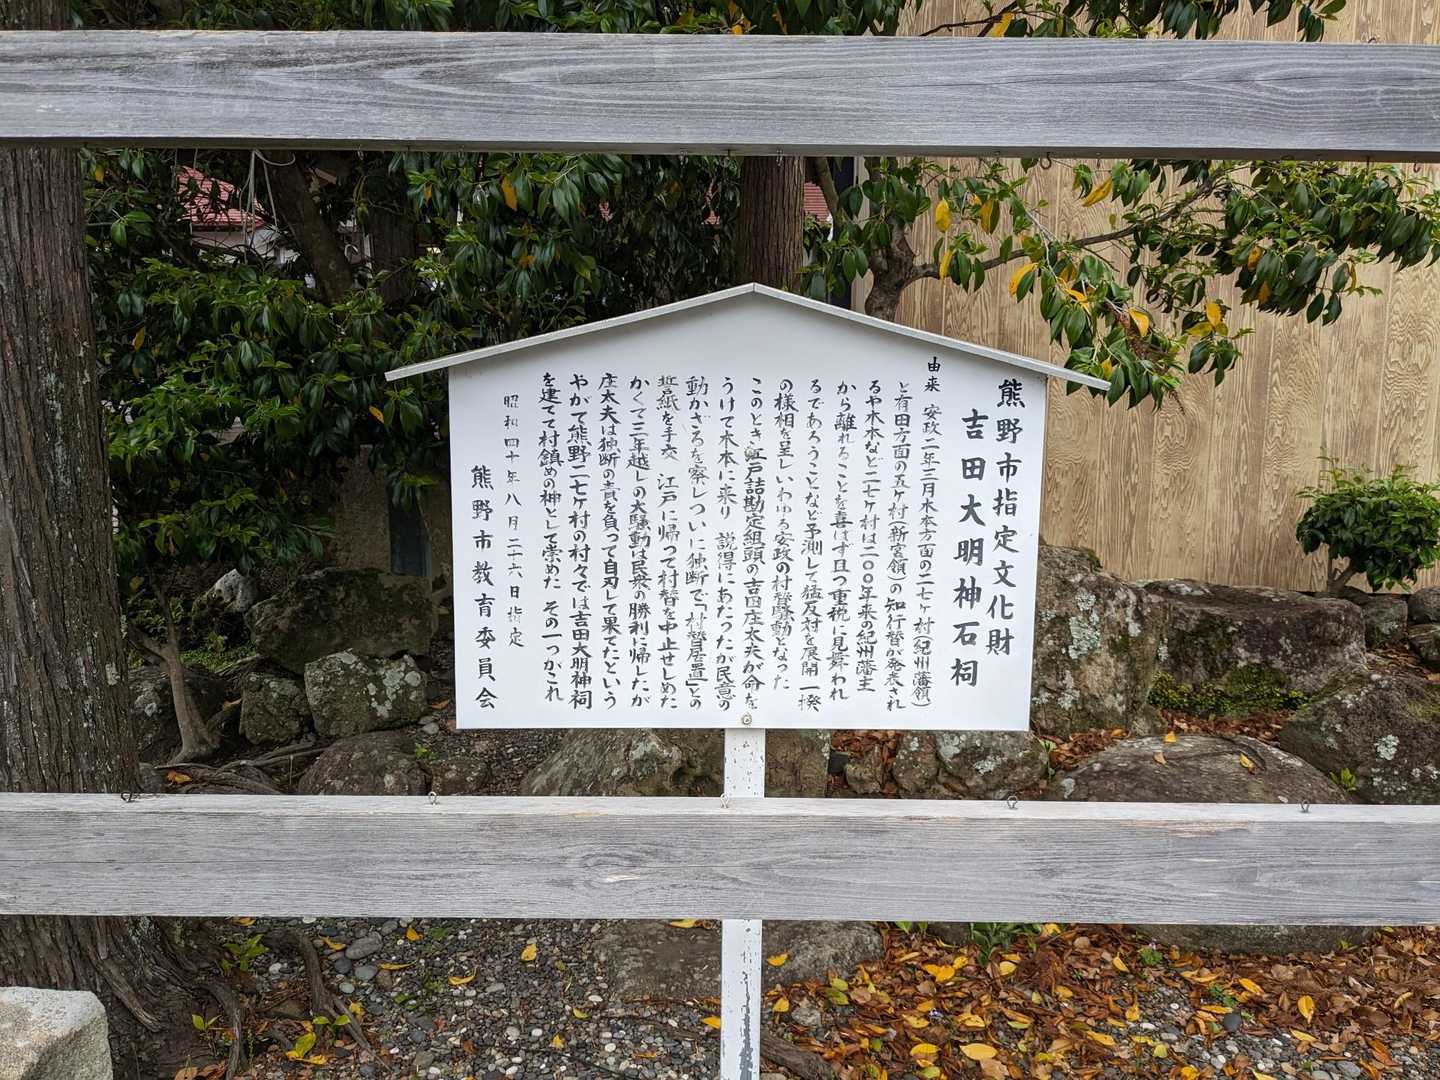 熊野市指定文化財
吉田大明神石祠
由来 安政二年三月木本方面の二七ヶ村(紀州藩領)
と有田方面の五ヶ村(新宮領)の知行替が発表され
るや木本など二七ヶ村は二〇〇年来の紀州藩主
から離れることを喜はず且つ重税に見舞われ
るであろうことなど予測して猛反対を展開 一揆
の様相を呈しいわゆる安政の村替騒動となった
このとき江戸詰勘定組頭の吉田庄太夫が命を
うけて木本に来り 説得にあたったが民意の
動かざるを察しついに独断で「村替居置」との
誓紙を手交 江戸に帰って村替を中止せしめた
かくて三年越しの大騒動は民衆の勝利に帰したが
庄太夫は独断の責を負って自刃して果てたという
やがて熊野二七ヶ村の村々では吉田大明神祠
を建てて村鎮めの神として崇めた その一つがこれ
昭和四十年八月二十六日指定
熊野市教育委員会